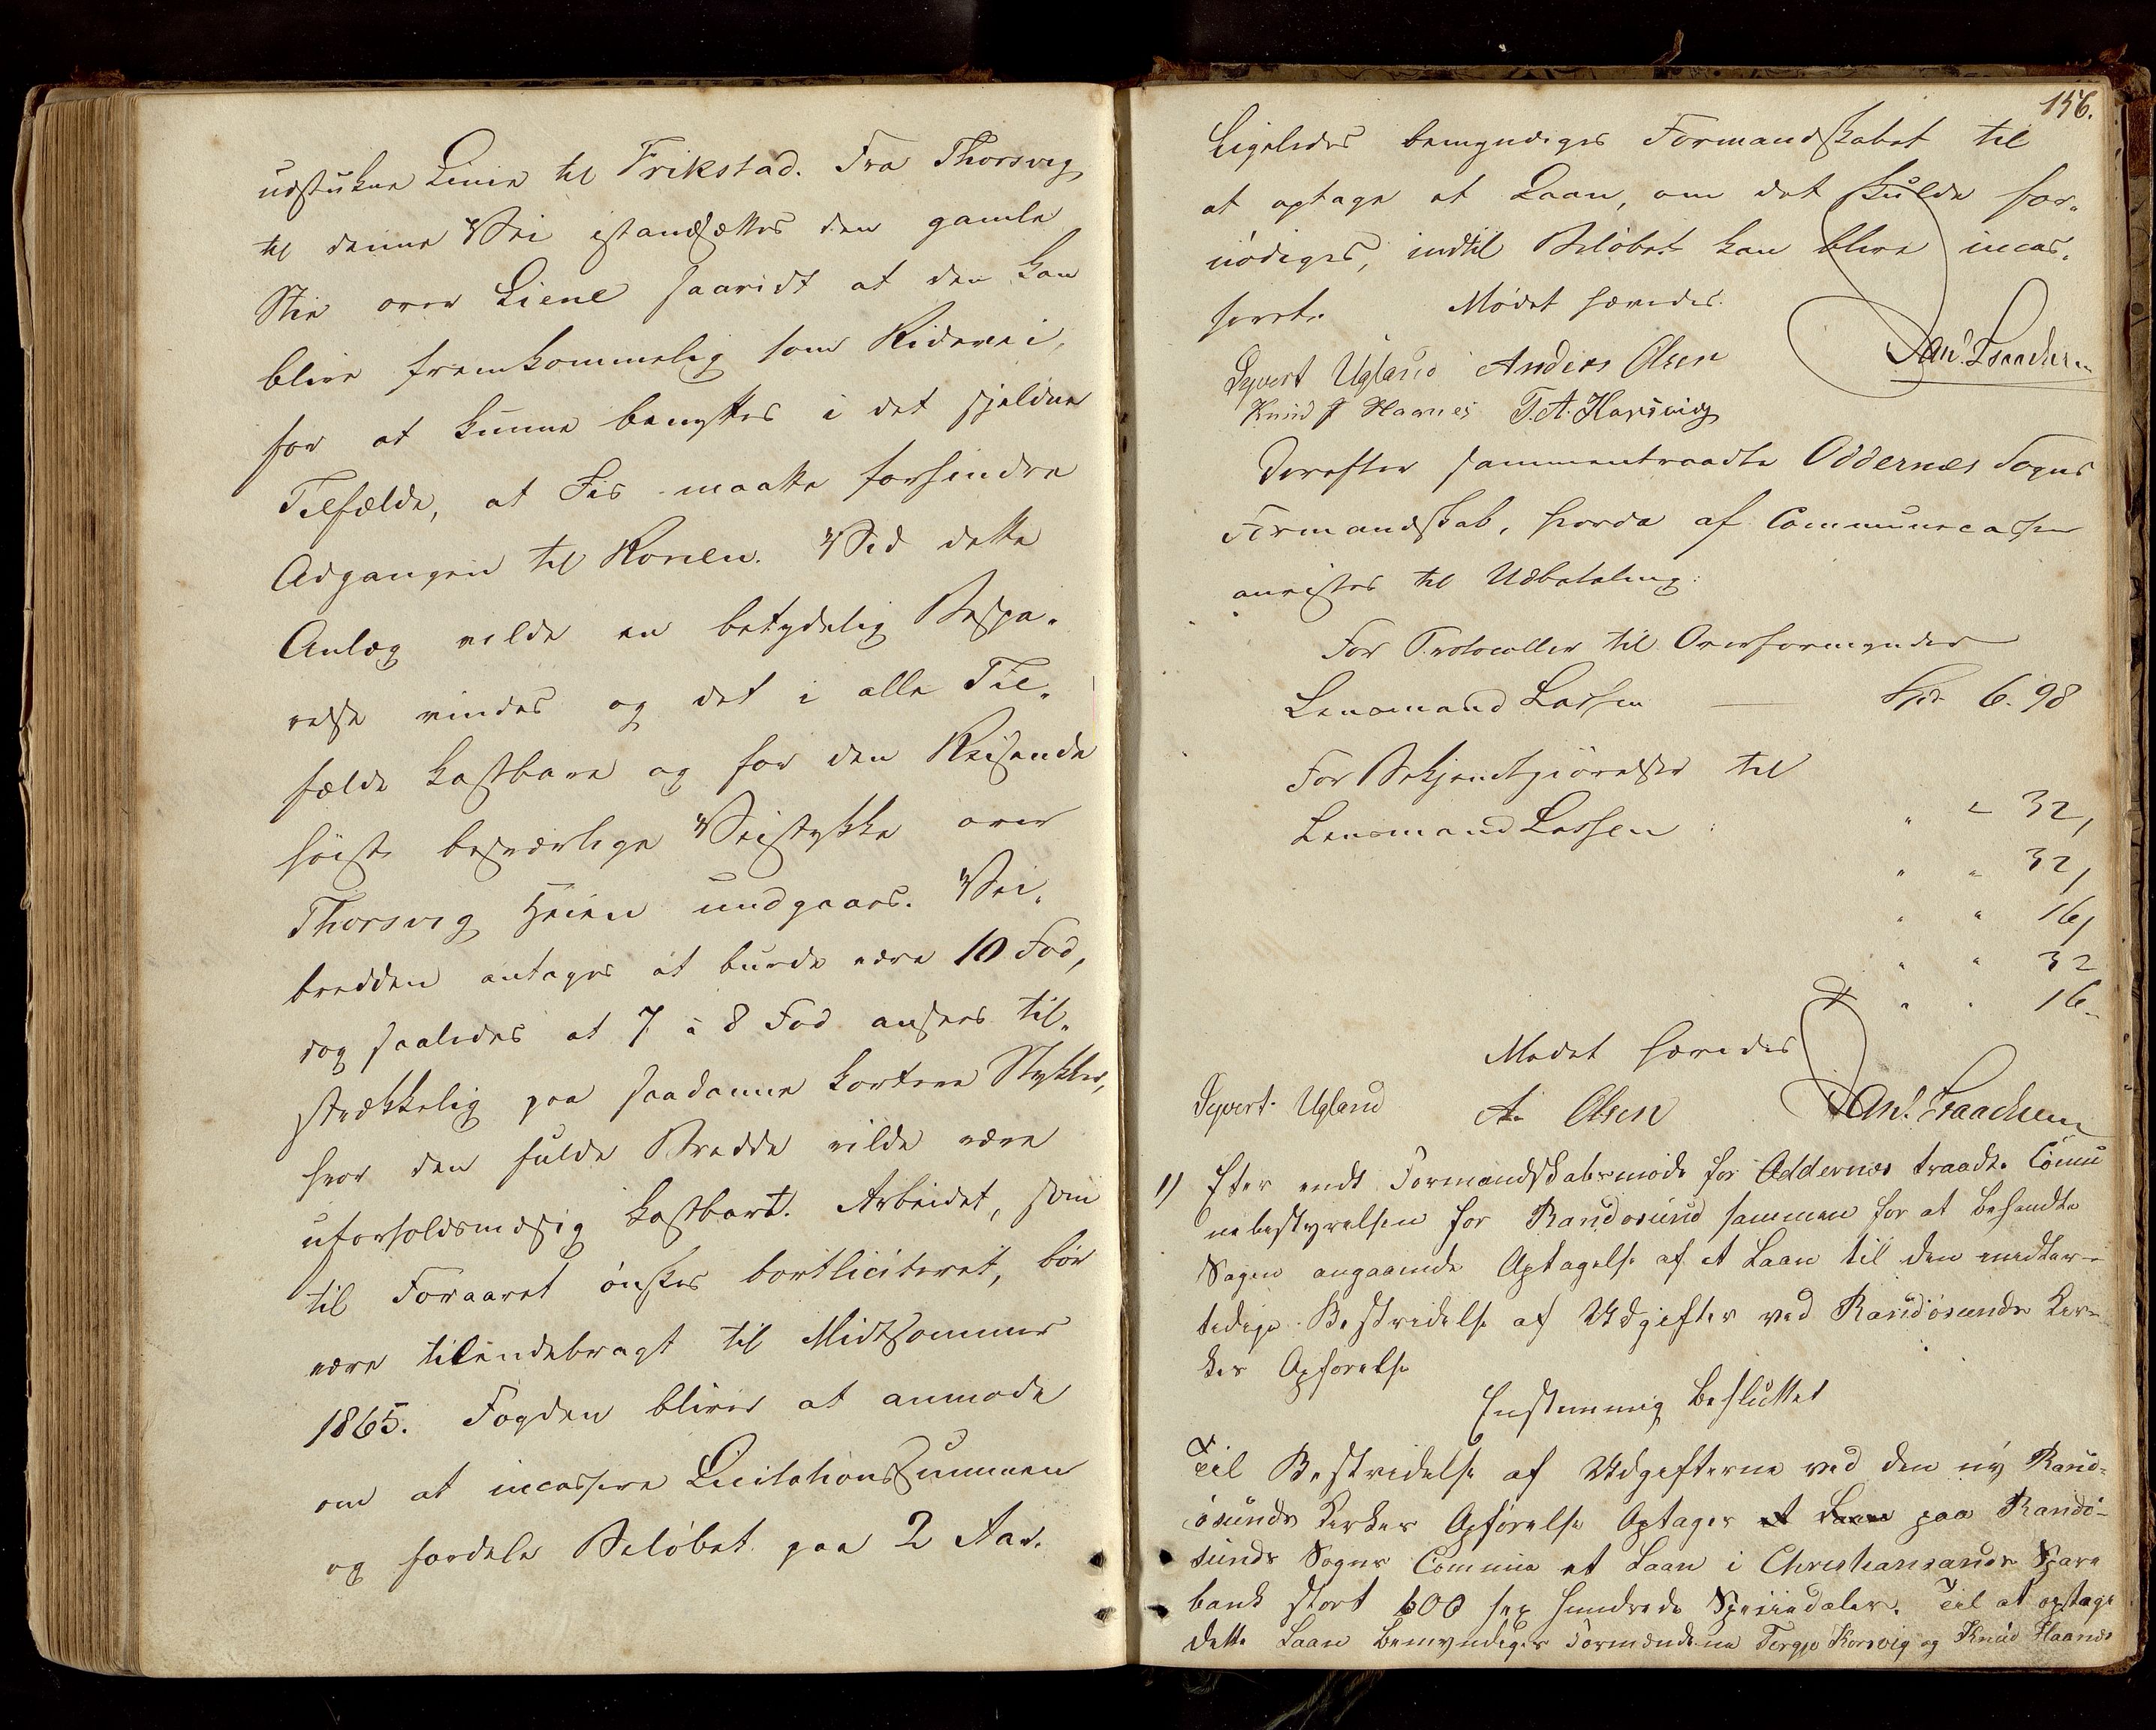 udstukne Linie til Frikstad. Fra Thorsvig
til denne Vei istandsættes den gamle
Stie over Liene saavidt at den kan
blive fremkommelig som Ridevei,
for at kunne benyttes i det sjeldne
Tilfælde, at Iis maatte forhindre
Adgangen til Roren. Ved dette
Anlæg vilde en betydelig Bespa-
relse vindes og det i alle Til-
fælde kostbare og for den Reisende
høist besværlige Veistykke over
Thorsvig Heien undgaaes. Vei-
bredden antages at burde være 10 Fod,
dog saaledes at 7 à 8 Fod ansees til-
strækkelig paa saadanne kortere Stykker,
hvor den fulde Bredde vilde være
uforholdsmæsig kostbart. Arbeidet, som
til Foraaret ønskes bortliciteret, bør
være tilendebragt til Midtsommer
1865. Fogden bliver at anmode
om at incassere Licitationssummen
og fordele Beløbet paa 2 Aar.
156.
Ligeledes bemyndiges Formandskabet til
at optage et Laan, om det skulde for-
nødiges, indtil Beløbet kan blive incas-
seret. Mødet hævedes.
Syvert Ugland Anders Olsen Dan. Isaachsen
Knud J Haanes T. A. Korsvig
Derefter sammentraadte Oddernæs Sogns
Formandskab, hvorda af Communecassen
anvistes til Udbetaling:
For Protocoller til Overformynder
Lensmand Lassen — Spd 6. 98
For Bekjendtgjørelser til
Lensmand Lassen : " " 32,
" " 32,
" " 16,
" " 32
" " 16.
Mødet hævedes
Syvert Ugland A. Olsen Dan. Isaachsen
1) Efter endt Formandskabsmøde for Oddernæs traadte Commu
nebestyrelsen for Randøsund sammen for at behandle
Sagen angaaende Optagelse af et Laan til den midler-
tidige Bestridelse af Udgifter ved Randøsunds Kir-
kes Opførelse
Enstemmig besluttet
Til Bestridelse af Udgifterne ved den ny Rand-
øsunds Kirkes Opførelse Optages et Laan paa Randø-
sunds Sogns Commune et Laan i Christiansands Spare
bank stort 600 sex hundrede Speciedaler. Til at optage
dette Laan bemyndiges Formændene Tergje Korsvig og Knud Haanes